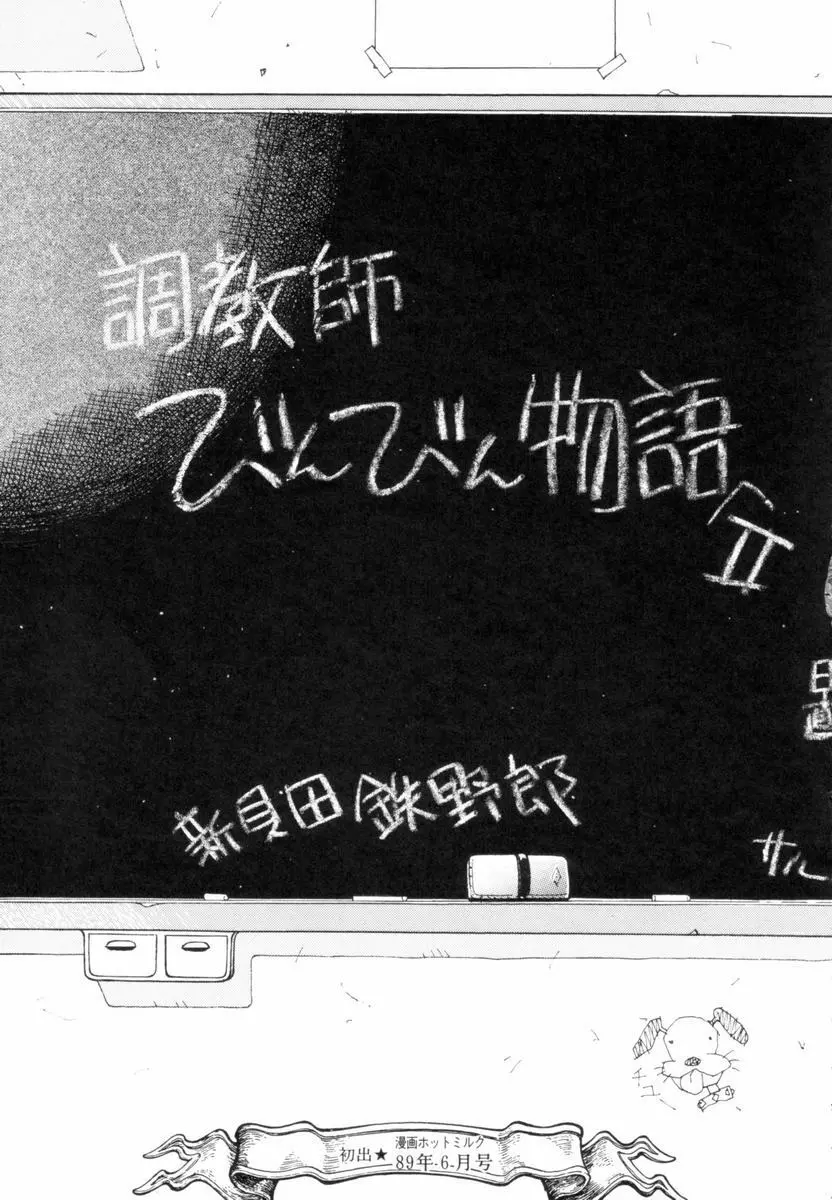 調教師
びんびん物語
II
日直
新貝田鉄野郎
サル
チュー
初出★漫画ホットミルク
89年-6-月号